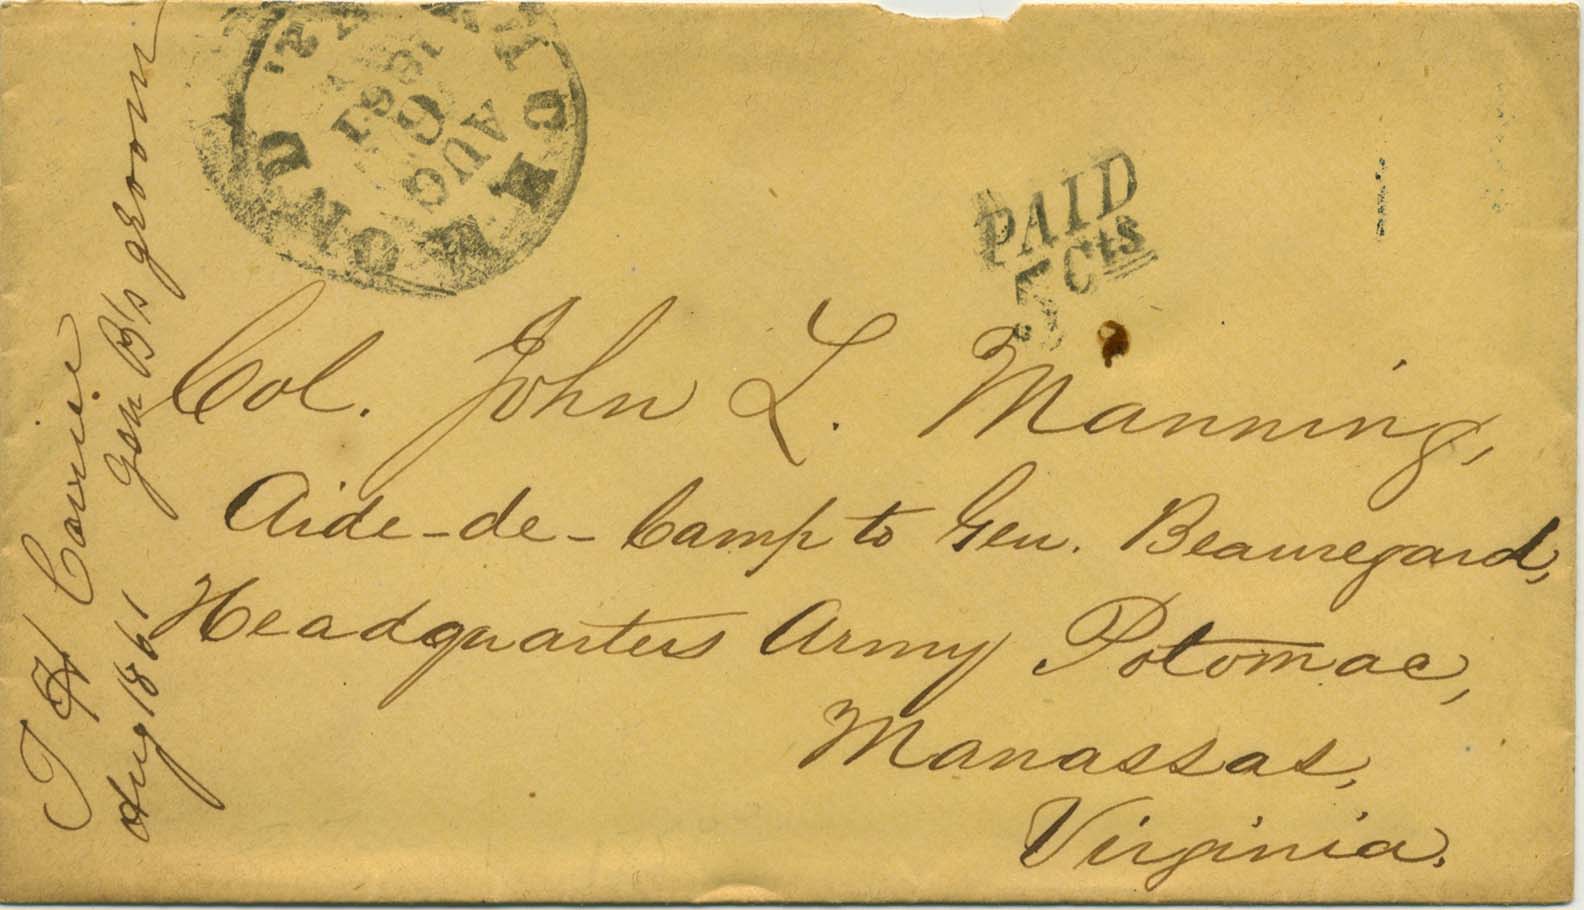 RICHMOND VA.
AUG
1861
PAID
5 Cts
Col. John L. Manning,
Aide-de-Camp to Gen. Beauregard,
Headquarters Army Potomac,
Manassas,
Virginia.
T H
Aug 1861 Gen B's groom